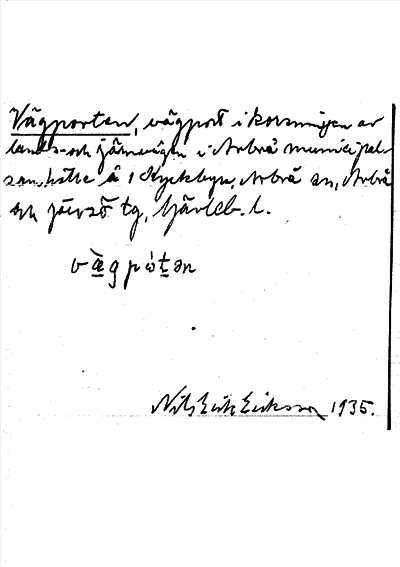 Vägporten, vägport i korsningen av
lands- och järnvägen i Arbrå municipal-
samhälle å 1 Kyrkbyn, Arbrå sn, Arbrå
och järvsö tg, Gävleb. l.
vægpotən
Nils Erik Eriksson 1935.